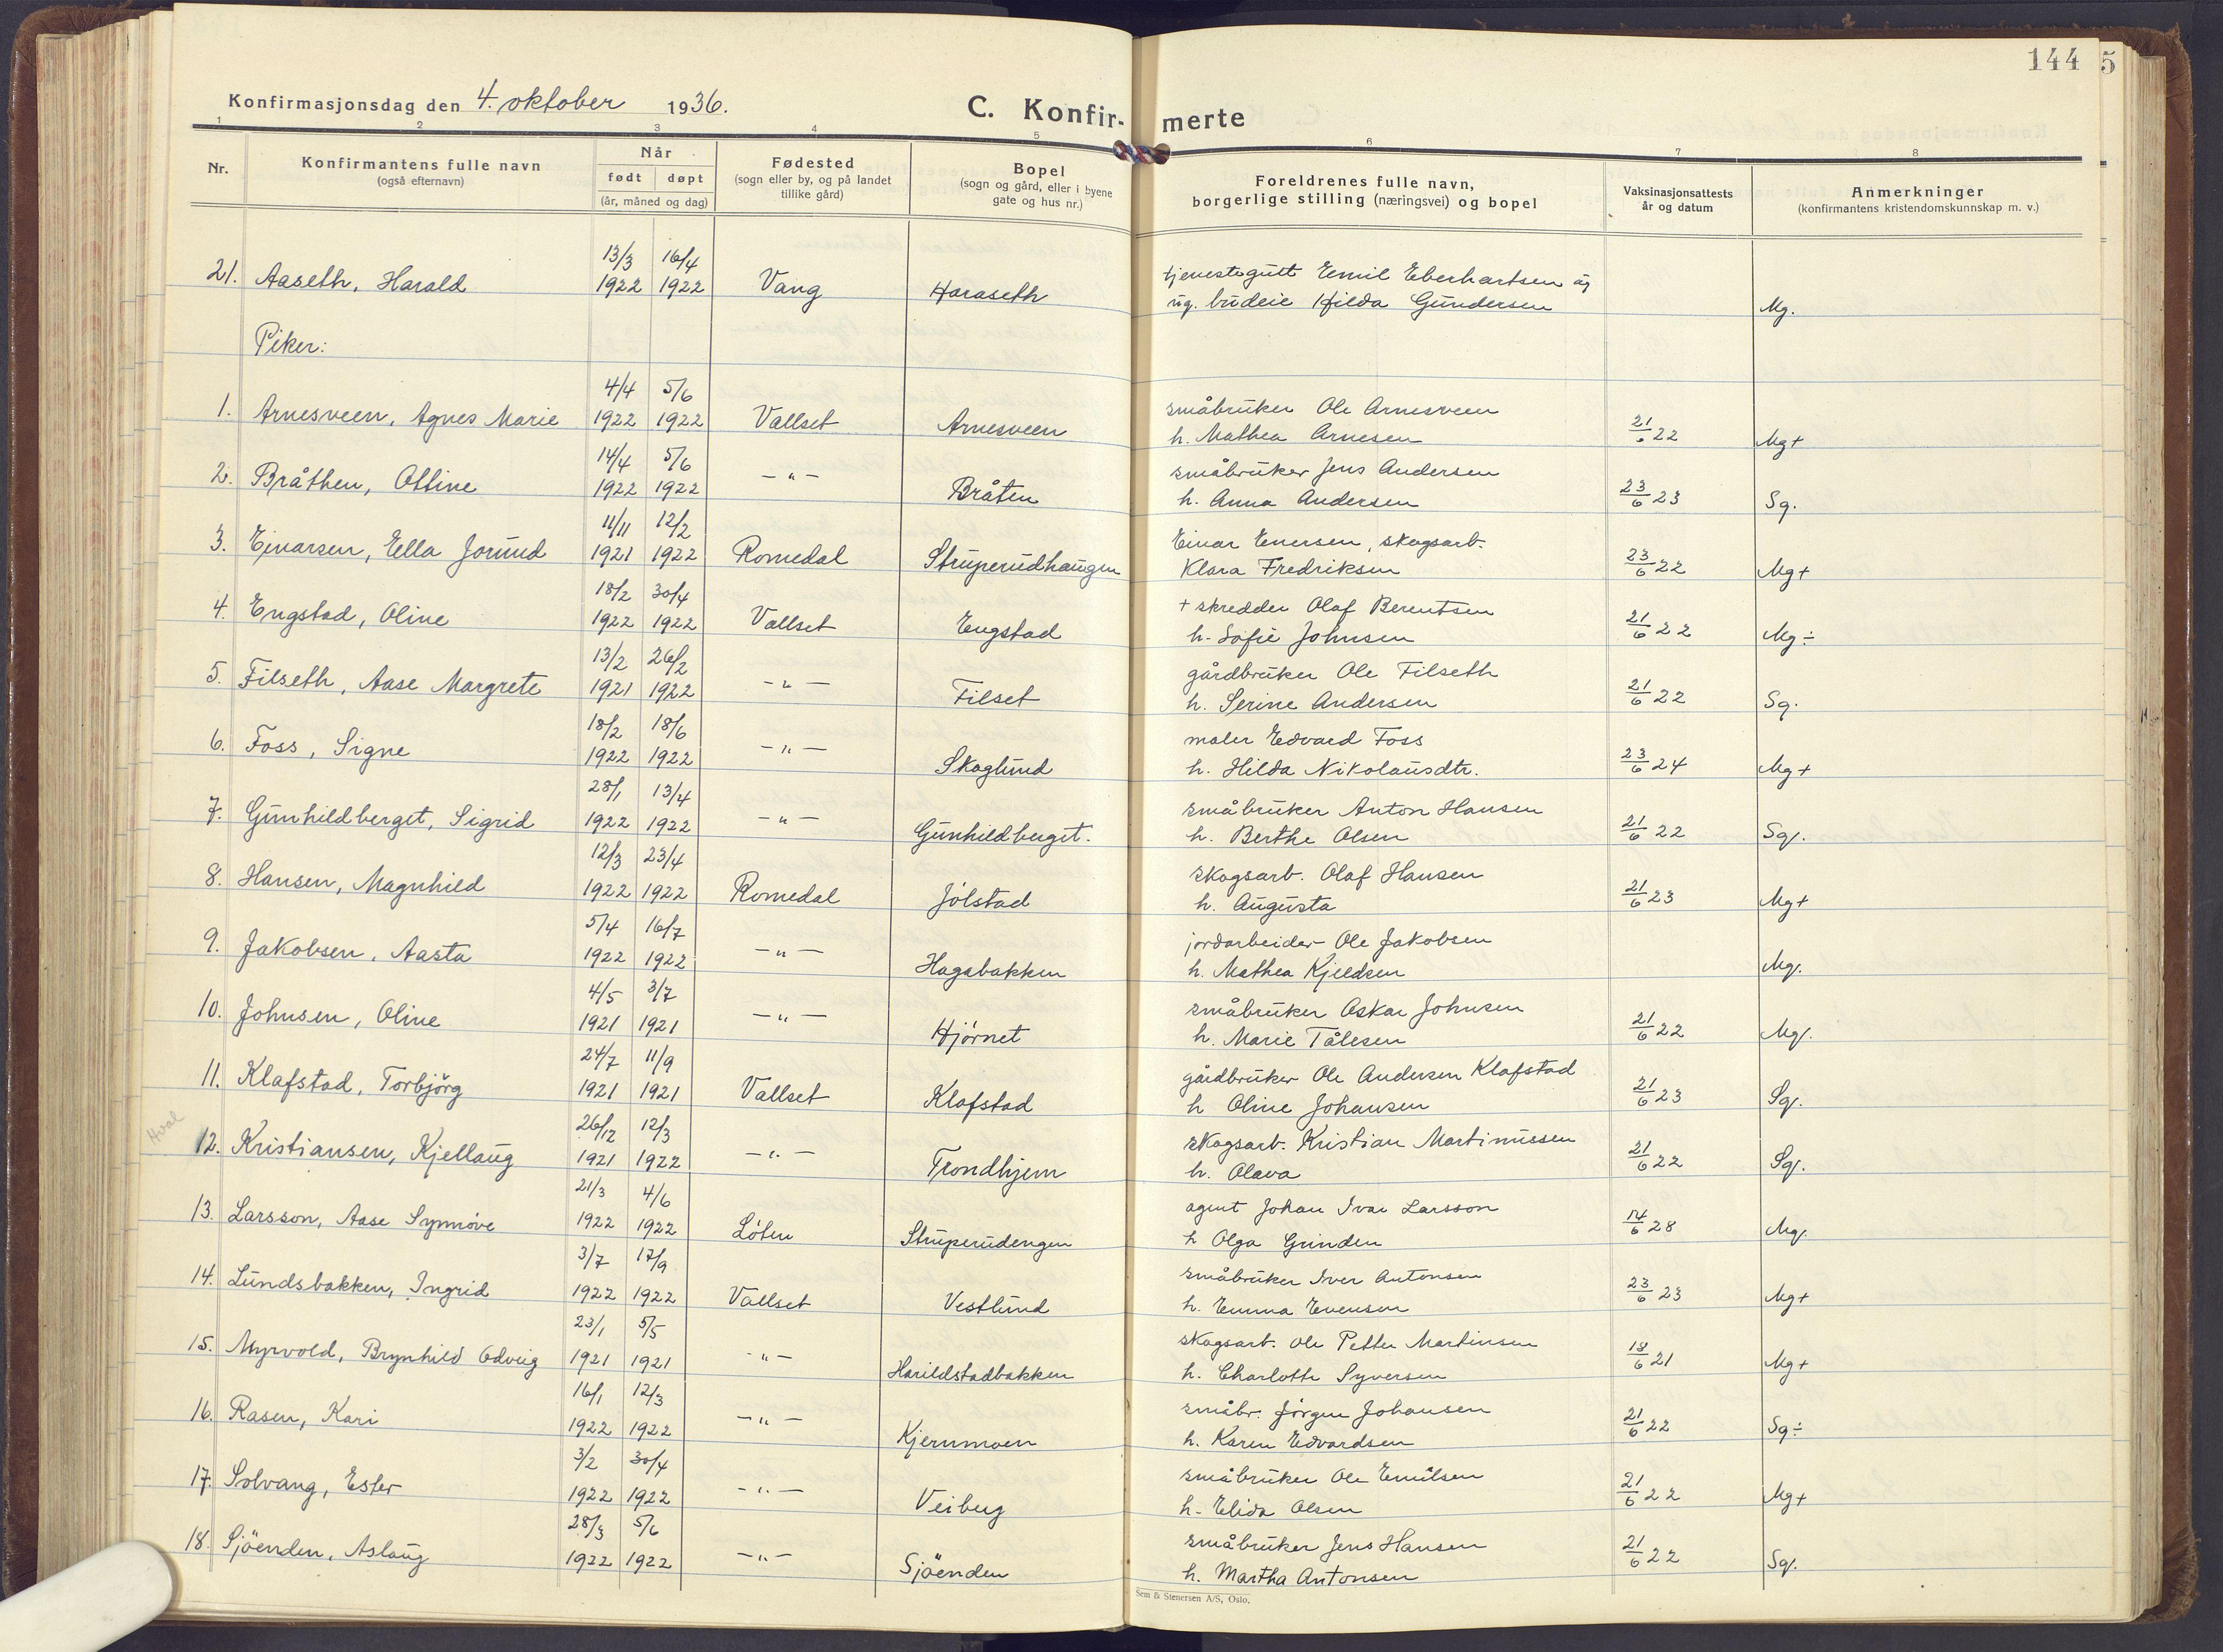 144
5
Konfirmasjonsdag den 4. oktober 1936.
C. Konfir-merte
1 2 3 4 5 6 7 8
Nr.
Konfirmantens fulle navn
(også efternavn)
Når
født døpt
(år, måned og dag)
Fødested
(sogn eller by, og på landet
tillike gård)
Bopel
(sogn og gård, eller i byene
gate og hus nr.)
Foreldrenes fulle navn,
borgerlige stilling (næringsvei) og bopel
Vaksinasjonsattests
år og datum
Anmerkninger
(konfirmantens kristendomskunnskap m. v.)
13/3 16/4 tjenestegutt Emil Eberhartsen og
21. Aaseth, Harald 1922 1922 Vang Haraseth ug. budeie Hilda Gundersen Mg.
Piker:
4/4 5/6 småbruker Ole Arnesveen
1. Arnesveen, Agnes Marie 1922 1922 Vallset Arnesveen h. Mathea Arnesen 21/6 22 Mg+
14/4 5/6 småbruker Jens Andersen
2. Bråthen, Otline 1922 1922 -"- Bråten h. Anna Andersen 23/6 23 Sg.
11/11 12/2 Einar Enersen, skogsarb.
3. Ejnarsen, Ella Jorund 1921 1922 Romedal Struperudhaugen Klara Fredriksen 23/6 22 Mg+
18/2 30/4 + skredder Olaf Berentsen
4. Engstad, Oline 1922 1922 Vallset Engstad h. Sofie Johnsen 21/6 22 Mg÷
13/2 26/2 gårdbruker Ole Filseth
5. Filseth, Aase Margrete 1921 1922 -"- Filset h. Serine Andersen 21/6 22 Sg.
18/2 18/6 maler Edvard Foss
6. Foss, Signe 1922 1922 -"- Skoglund h. Hilda Nikolausdtr. 23/6 24 Mg+
28/1 13/4 småbruker Anton Hansen
7. Gunhildberget, Sigrid 1922 1922 -"- Gunhildberget. h. Berthe Olsen 21/6 22 Sg.
12/3 23/4 skogsarb. Olaf Hansen
8. Hansen, Magnhild 1922 1922 Romedal Jølstad h. Augusta 21/6 23 Mg+
5/4 16/7 jordarbeider Ole Jakobsen
9. Jakobsen, Aasta 1922 1922 -"- Hagabakken h. Mathea Kjeldsen Mg.
4/5 3/7 småbruker Oskar Johnsen
10. Johnsen, Oline 1921 1921 -"- Hjørnet h. Marie Tålesen 21/6 22 Mg.
24/7 11/9 gårdbruker Ole Andersen Klafstad
11. Klafstad, Torbjörg 1921 1921 Vallset Klafstad h Oline Johansen 21/6 23 Sg.
Hval
26/12 12/3 skogsarb. Kristian Martinussen
12. Kristiansen, Kjellaug 1921 1922 -"- Trondhjem h. Olava 21/6 22 Sg.
21/3 4/6 agent Johan Ivar Larsson
13. Larsson, Aase Synnøve 1922 1922 Løten Struperudengen h Olga Grinden 14/6 28 Mg.
3/7 17/9 småbruker Iver Antonsen
14. Lundsbakken, Ingrid 1922 1922 Vallset Vestlund h. Emma Evensen 23/6 23 Mg+
23/1 5/5 skogsarb. Ole Petter Martinsen
15. Myrvold, Brynhild Odveig 1921 1921 -"- Harildstadbakken h. Charlotte Syversen 18/6 21 Mg+
16/1 12/3 småbr. Jörgen Johansen
16. Rasen, Kari 1922 1922 -"- Kjernmoen h. Karen Edvardsen 21/6 22 Sg÷
3/2 30/4 småbruker Ole Emilsen
17. Solvang, Ester 1922 1922 -"- Veiberg h. Elida Olsen 21/6 22 Mg+
28/3 5/6 småbruker Jens Hansen
18. Sjöenden, Aslaug 1922 1922 -"- Sjöenden h. Martha Antonsen 21/6 22 Sg.
Sem & Stenersen A/S, Oslo.